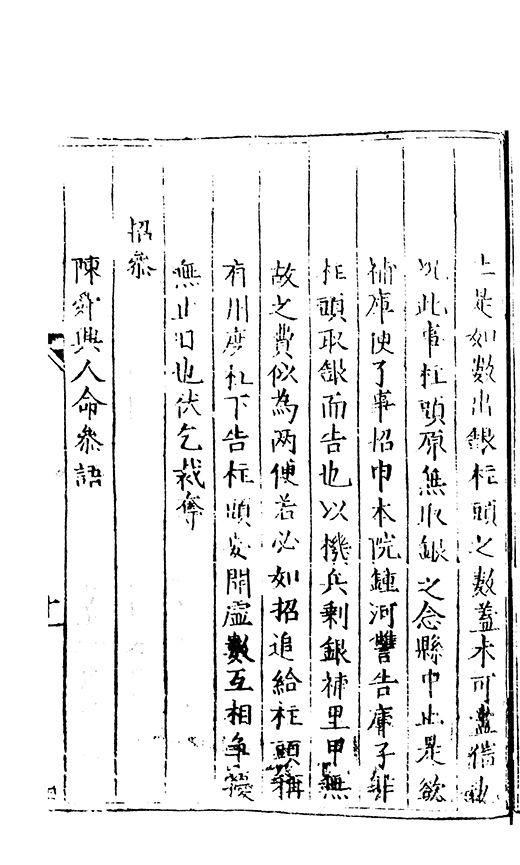 上是如数出銀柱頭之数蓋未可盡信也
况此事柱頭原無收銀之念縣中止是欲
補庫使了事招申本院鍾河讐告庫子非
柱頭取銀而告也以機兵剩銀補里甲無
故之費似為两便若必如招追給柱頭
有用度扎下告柱頭妄開虚數互相争擾
無止日也伏乞裁奪
招叅
陳舜興人命叅語
十